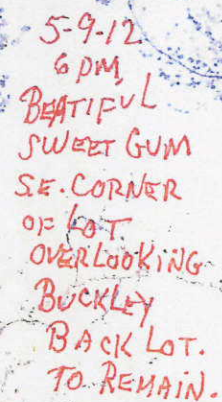 5-9-12
6 PM,
BEATIFUL
SWEET GUM
S.E. CORNER
OF LOT
OVERLOOKING
BUCKLEY
BACK LOT.
TO REMAIN.